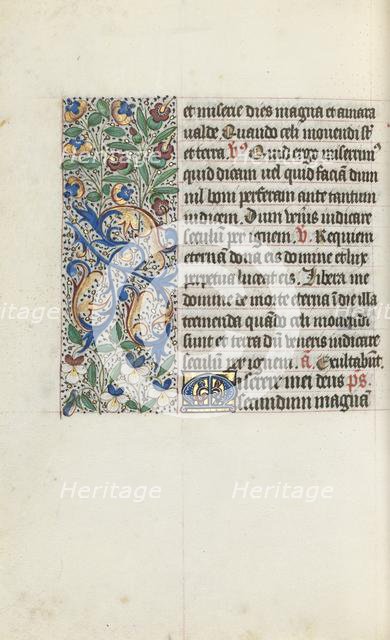 et miserie dies magna et amara
valde. Quando celi movendi st̄
et terra. V̊. Quid ergo miserrim⁹
quid dicam vel quid faciā dum
nil boni perferam ante tantum
iudicem. Dum veneris iudicare
seculū per ignem. V. Requiem
eternā dona eis domine et lux
perpetua luceat eis. Libera me
domine de morte eterna ī die illa
tremenda quādo celi movēdi
sunt et terra dū veneris iudicare
seculū per ignem. ā. Exultabūt.
Miserere mei deus p̄s.
secundum magnā
Heritage
Heritage
Heritage
Heritage